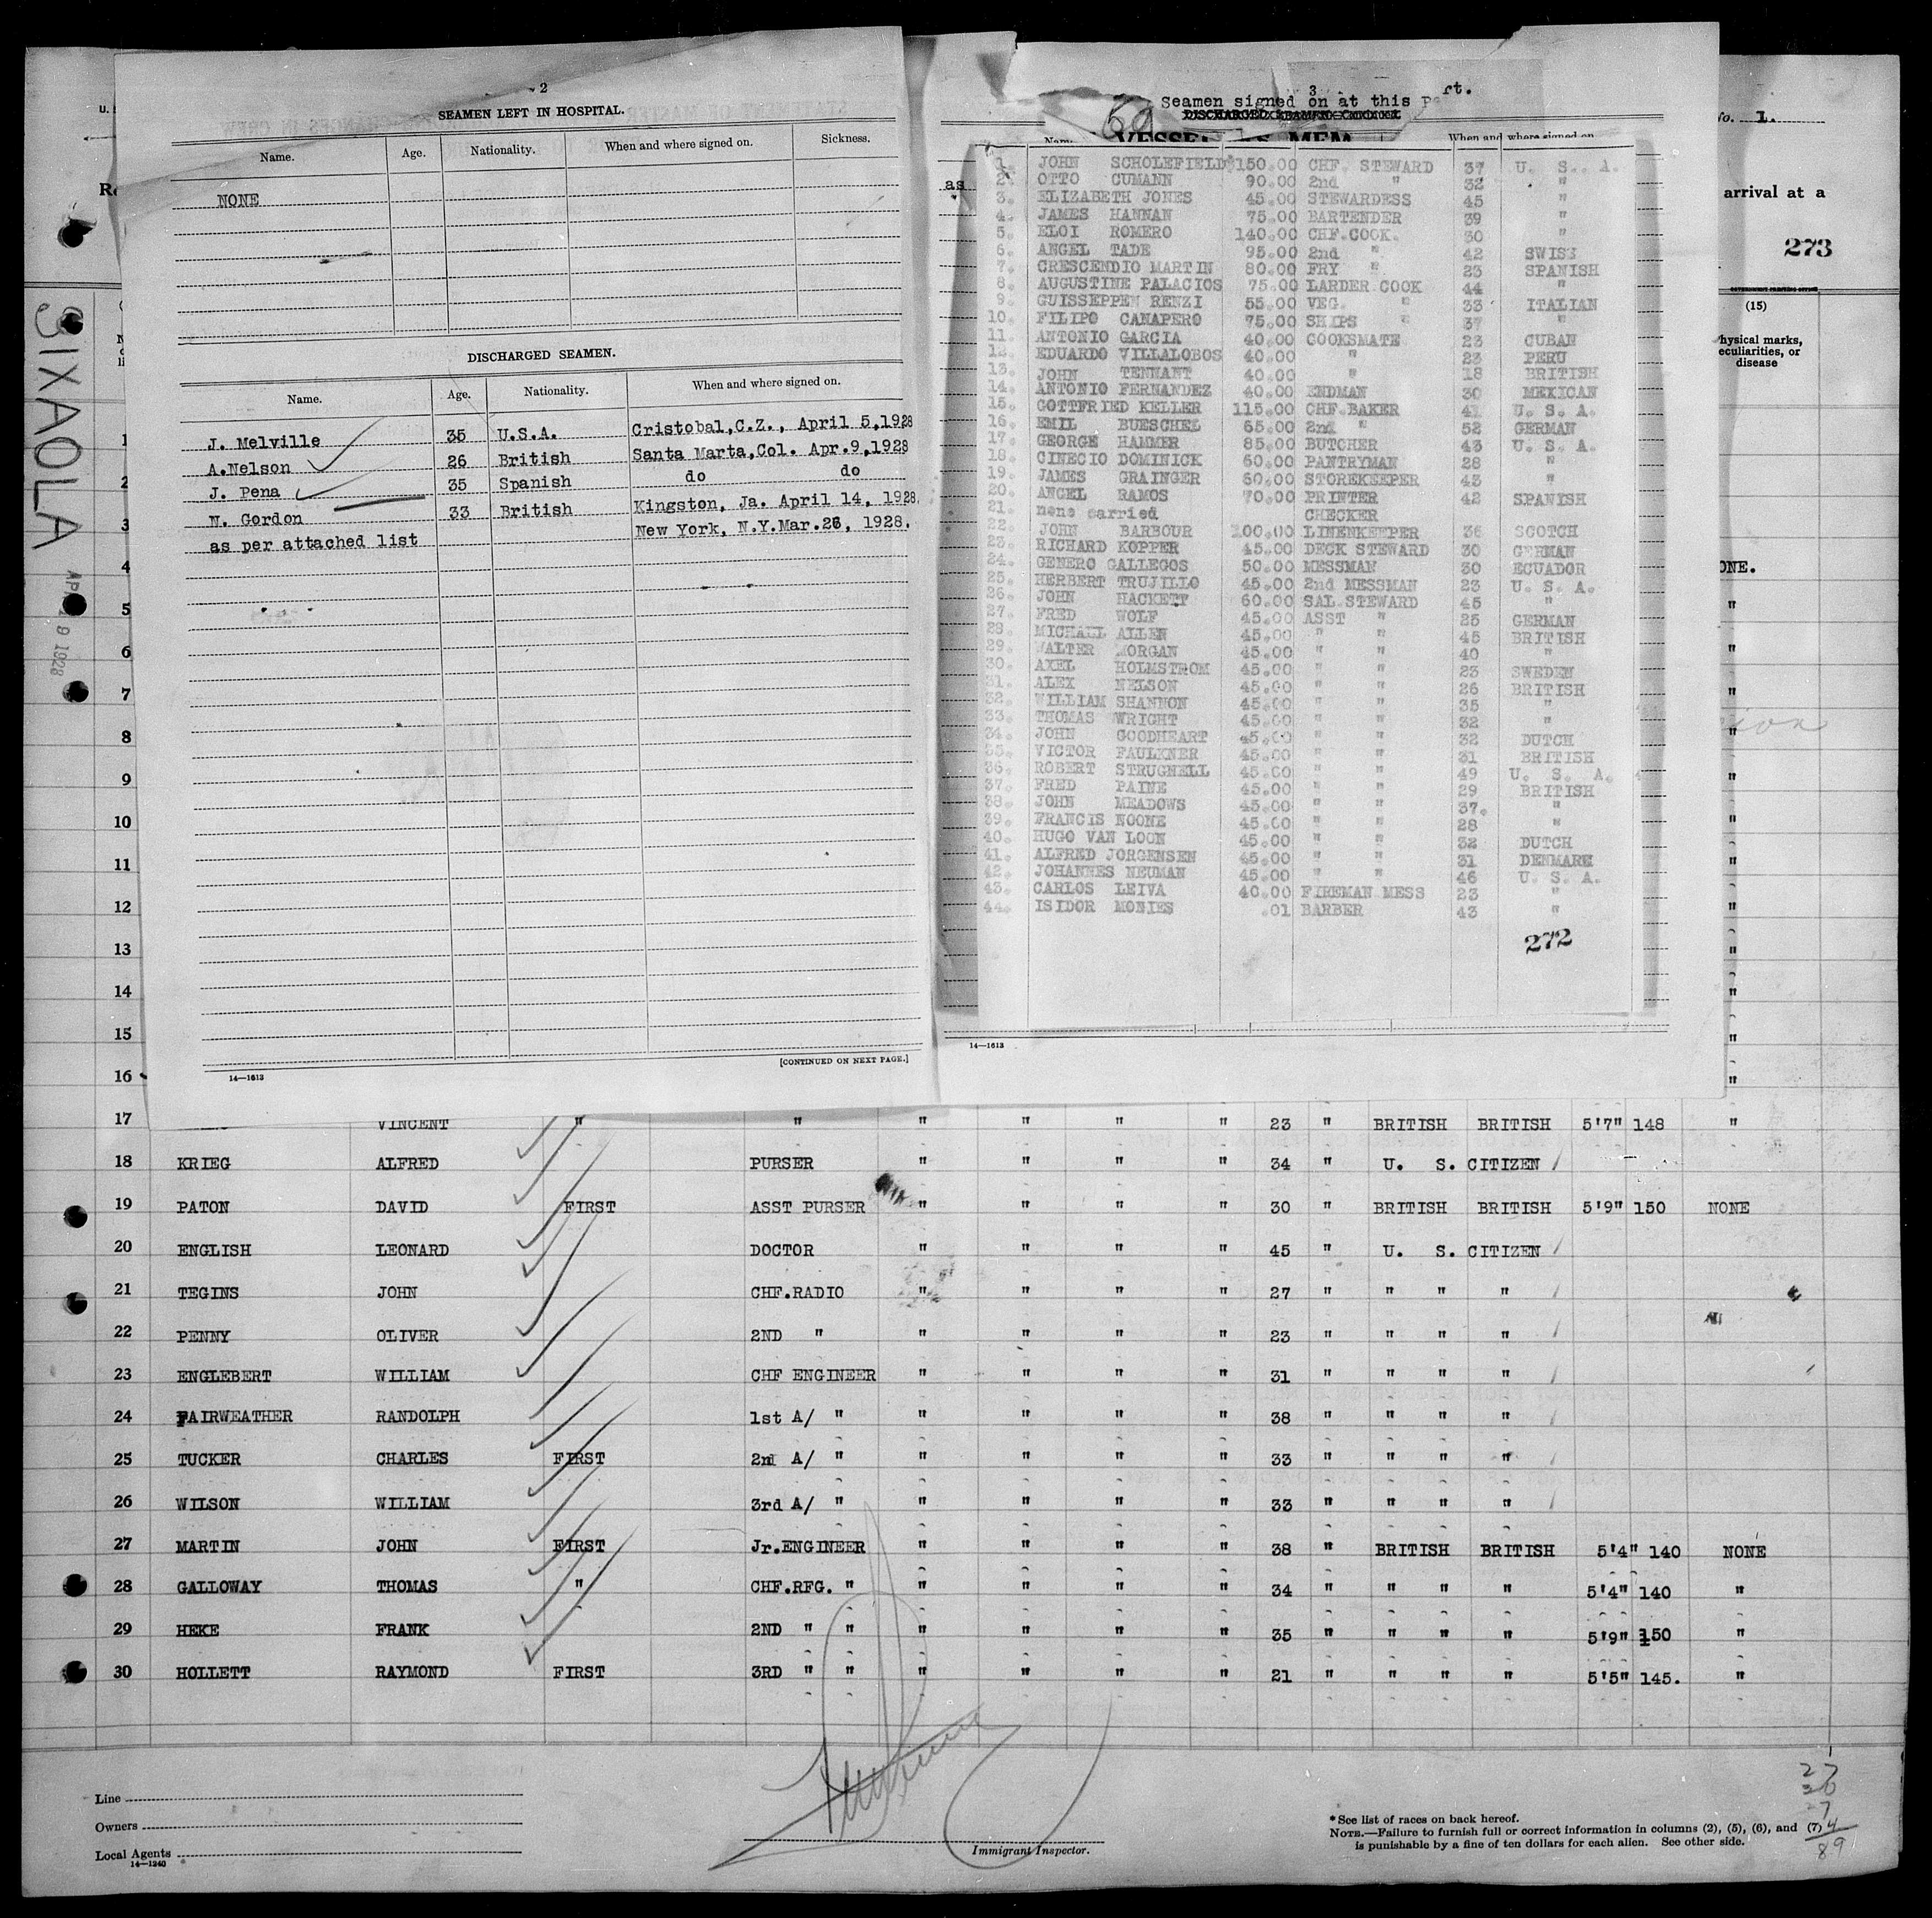 2
SEAMEN LEFT IN HOSPITAL.
Name. Age. Nationality. When and where signed on. Sickness.
NONE
DISCHARGED SEAMEN.
Name. Age. Nationality. When and where signed on.
J. Melville 35 U.S.A. Cristobal,C.Z., April 5,1928
A.Nelson 26 British Santa Marta,Col. Apr.9,1928
J. Pena 35 Spanish do do
N. Gordon 33 British Kingston, Ja. April 14, 1928.
as per attached list New York, N.Y.Mar.26, 1928.
[CONTINUED ON NEXT PAGE.]
14—1613
3
Seamen signed on at this
69
When and where signed on
1. JOHN SCHOLEFIELD $150.00 CHF. STEWARD 37 U. S. A.
2. OTTO CUMANN 90.00 2nd " 32 "
3. ELIZABETH JONES 45.00 STEWARDESS 45 "
4. JAMES HANNAN 75.00 BARTENDER 39 "
5. ELOI ROMERO 140.00 CHF.COOK. 30 "
6. ANGEL TADE 95.00 2nd " 42 SWISS
7. CRESCENDIO MARTIN 80.00 FRY " 23 SPANISH
8. AUGUSTINE PALACIOS 75.00 LARDER COOK 44 "
9. GUISSEPPEN RENZI 55.00 VEG. " 33 ITALIAN
10. FILIPO CANAPERO 75.00 SHIPS " 37 "
11. ANTONIO GARCIA 40.00 COOKSMATE 23 CUBAN
12. EDUARDO VILLALOBOS 40.00 " 23 PERU
13. JOHN TENNANT 40.00 " 18 BRITISH
14. ANTONIO FERNANDEZ 40.00 ENDMAN 30 MEXICAN
15. GOTTFRIED KELLER 115.00 CHF.BAKER 41 U. S. A.
16. EMIL BUESCHEL 65.00 2nd " 52 GERMAN
17. GEORGE HAMMER 85.00 BUTCHER 43 U. S. A.
18. CINECIO DOMINICK 60.00 PANTRYMAN 28 "
19. JAMES GRAINGER 60.00 STOREKEEPER 43 "
20. ANGEL RAMOS 70.00 PRINTER 42 SPANISH
21. none carried CHECKER
22. JOHN BARBOUR 100.00 LINENKEEPER 36 SCOTCH
23. RICHARD KOPPER 45.00 DECK STEWARD 30 GERMAN
24. GENERO GALLEGOS 50.00 MESSMAN 30 ECUADOR
25. HERBERT TRUJILLO 45.00 2nd MESSMAN 23 U. S. A.
26. JOHN HACKETT 60.00 SAL.STEWARD 45 "
27. FRED WOLF 45.00 ASST " 25 GERMAN
28. MICHALL ALLEN 45.00 " " 45 BRITISH
29. WALTER MORGAN 45.00 " " 40 "
30. AXEL HOLMSTROM 45.00 " " 23 SWEDEN
31. ALEX NELSON 45.00 " " 26 BRITISH
32. WILLIAM SHANNON 45.00 " " 35 "
33. THOMAS WRIGHT 45.00 " " 32 "
34. JOHN GOODHEART 45.00 " " 32 DUTCH
35. VICTOR FAULKNER 45.00 " " 31 BRITISH
36. ROBERT STRUGNELL 45.00 " " 49 U. S. A.
37. FRED PAINE 45.00 " " 29 BRITISH
38. JOHN MEADOWS 45.00 " " 37. "
39. FRANCIS NOONE 45.00 " " 28 "
40. HUGO VAN LOON 45.00 " " 32 DUTCH
41. ALFRED JORGENSEN 45.00 " " 31 DENMARK
42. JOHANNES NEUMAN 45.00 " " 46 U. S. A.
43. CARLOS LEIVA 40.00 FIREMAN MESS 23 "
44. ISIDOR MONIES .01 BARBER 43 "
272
14—1613
1.
as
arrival at a
273
(15)
SIXAOLA
1928
1
2
3
4
5
6
7
8
9
10
11
12
13
14
15
16
17 VINCENT " " " " " " 23 " BRITISH BRITISH 5'7" 148 "
18 KRIEG ALFRED PURSER " " " " 34 " U. S. CITIZEN
19 PATON DAVID FIRST ASST PURSER " " " " 30 " BRITISH BRITISH 5'9" 150 NONE
20 ENGLISH LEONARD DOCTOR " " " " 45 " U. S. CITIZEN
21 TEGINS JOHN CHF.RADIO " " " " 27 " " " "
22 PENNY OLIVER 2ND " " " " " 23 " " " "
23 ENGLEBERT WILLIAM CHF ENGINEER " " " " 31 " " " "
24 FAIRWEATHER RANDOLPH 1st A/ " " " " " 38 " " " "
25 TUCKER CHARLES FIRST 2nd A/ " " " " " 33 " " " "
26 WILSON WILLIAM 3rd A/ " " " " " 33 " " " "
27 MARTIN JOHN FIRST Jr.ENGINEER " " " " 38 " BRITISH BRITISH 5'4" 140 NONE
28 GALLOWAY THOMAS " CHF.RFG. " " " " " 34 " " " " 5'4" 140 "
29 HEKE FRANK 2ND " " " " " " 35 " " " " 5'9" 150 "
30 HOLLETT RAYMOND FIRST 3RD " " " " " " 21 " " " " 5'5" 145. "
Line
Owners
Local Agents
14—1240
Immigrant Inspector.
*See list of races on back hereof.
NOTE.—Failure to furnish full or correct information in columns (2), (5), (6), and (7)
is punishable by a fine of ten dollars for each alien. See other side.
89